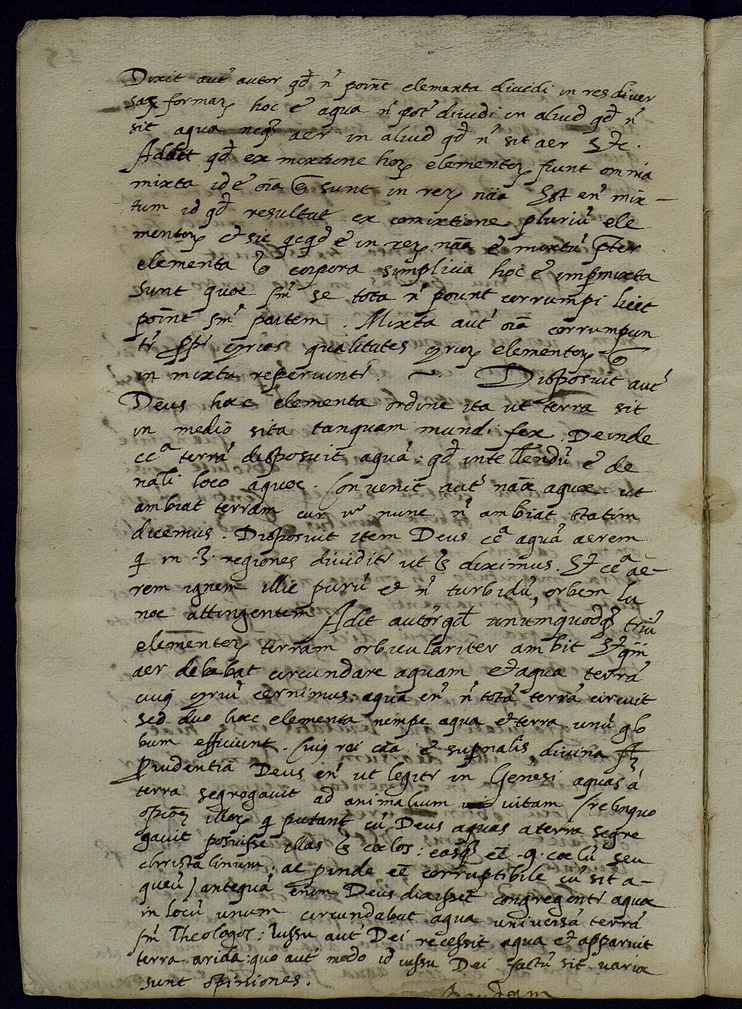 Dixit aut autor qd n point elementa dividi in res diver
sar formar hoc e aqua n pot dividi in aliud qd n
sit aqua neq aer in aliud qd n sit aer &c.
Addit qd ex mixtione hor elementor fiunt omnia
mixta id e oia sunt in rer naa Est en mix-
tum id qd resultat ex comixtione pluriu ele
mentor et sic qcqd e in rer naa e mixtu pter
elementa corpora simplicia hoc e impmixta
sunt quae sm se tota n pount corrumpi licet
point sm partem. Mixta aut oia corrumpun
tr ppr qrias qualitates qrior elementor
in mixtu reperiuntr ~ Disposuit aut
Deus haec elementa ordine ita ut terra sit
in medio sita tanquam mundi fex. Deinde
cca terra disposuit aqua: qd intelledu e de
nali loco aquae. Convenit aut nae aquae ut
ambiat terram cur vo nunc n ambiat statim
dicemus. Disposuit item Deus cca aqua aerem
q in 3 regiones dividitr ut diximus. Et cca ae-
rem ignem illic puru et n turbidu, orbem lu
nae attingentem Adit autor qd unumquodq triu
elementor terram orbiculariter ambit
aer debebat circundare aquam et aqua terra
cuiq qriu cernimus: aqua en n tota terra circuit
sed duo haec elementa nempe aqua et terra unu glo
bum efficiunt. Cuiq rei caa e supnalis, divina
Prudentia Deus en ut legitr in Genesi aquas a
terra segregavit ad animalium vitam (relinquo
opinor illor q putant cu Deus aquas a terra segre
gavit posuisse illas coelos: easq ee 9. coelu seu
christalinum, ac pinde ee corruptibile cu sit a-
queu) antequa enim Deus dixisset congregentr aquae
in locu unum circundabat aqua universa terra
sm Theologos: iussu aut Dei recessit aqua et apparuit
terra arida: quo aut modo id iussu Dei factu sit variae
sunt opiniones.